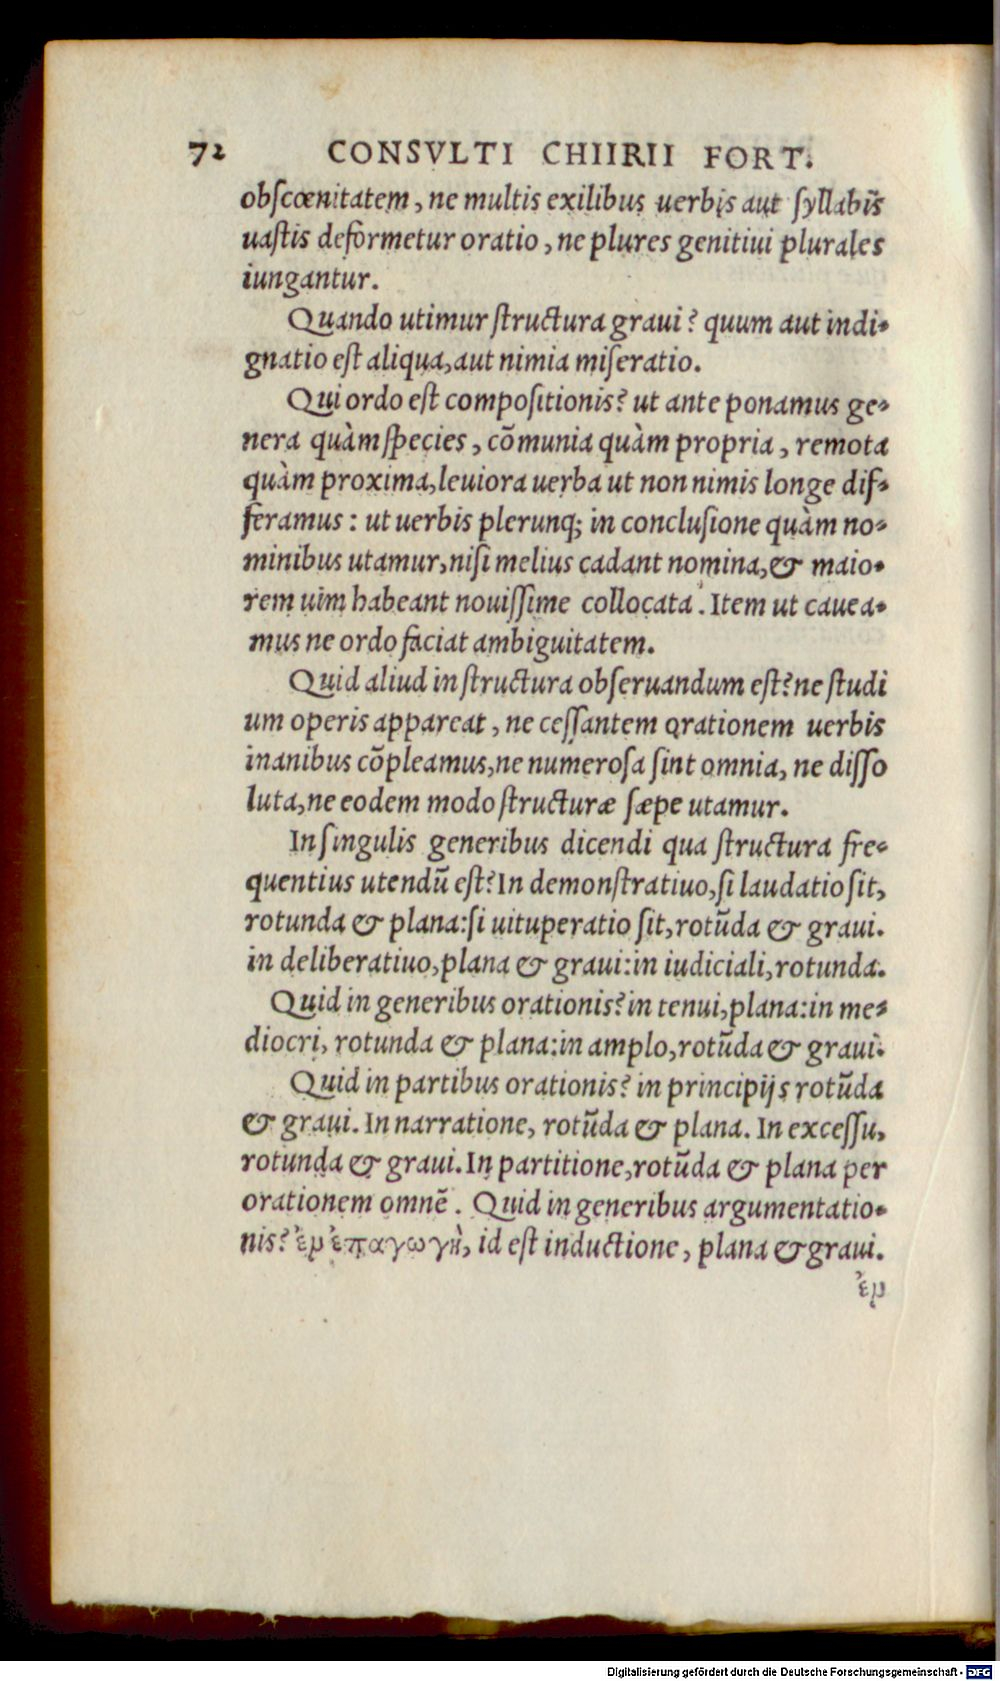 72 CONSVLTI CHIIRII FORT.
obſcœnitatem, ne multis exilibus uerbis aut ſyllabis
uaſtis deformetur oratio, ne plures genitiui plurales
iungantur.
Quando utimur ſtructura graui? quum aut indi-
gnatio eſt aliqua, aut nimia miſeratio.
Qui ordo eſt compoſitionis? ut ante ponamus ge-
nera quàm ſpecies, cõmunia quàm propria, remota
quàm proxima, leuiora uerba ut non nimis longe dif-
feramus: ut uerbis plerunq; in concluſione quàm no-
minibus utamur, niſi melius cadant nomina, & maio-
rem uim habeant nouiſſime collocata. Item ut cauea-
mus ne ordo faciat ambiguitatem.
Quid aliud in ſtructura obſeruandum eſt? ne ſtudi
um operis appareat, ne ceſſantem orationem uerbis
inanibus cõpleamus, ne numeroſa ſint omnia, ne diſſo
luta, ne eodem modo ſtructuræ ſæpe utamur.
In ſingulis generibus dicendi qua ſtructura fre-
quentius utendũ eſt? In demonſtratiuo, ſi laudatio ſit,
rotunda & plana: ſi uituperatio ſit, rotũda & graui.
in deliberatiuo, plana & graui: in iudiciali, rotunda.
Quid in generibus orationis? in tenui, plana: in me-
diocri, rotunda & plana: in amplo, rotũda & graui.
Quid in partibus orationis? in principijs rotũda
& graui. In narratione, rotũda & plana. In exceſſu,
rotunda & graui. In partitione, rotũda & plana per
orationem omnẽ. Quid in generibus argumentatio-
nis? ἐν ἐπαγωγῇ, id eſt inductione, plana & graui.
ἐν
Digitalisierung gefördert durch die Deutsche Forschungsgemeinschaft - DFG